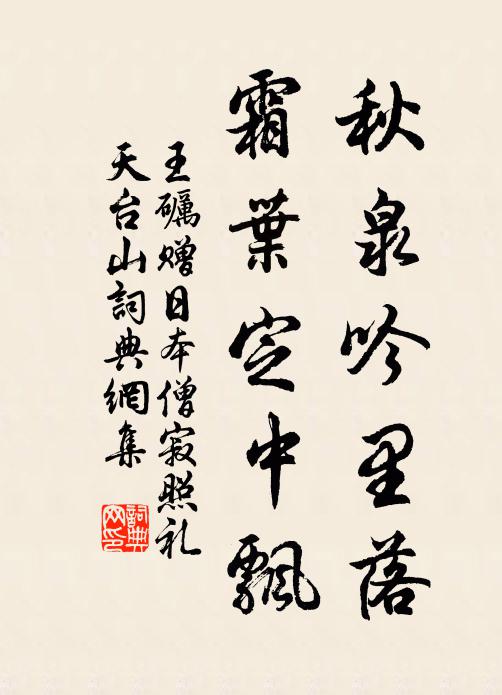 秋泉吟里落
霜葉定中飄
王礪贈日本僧寂照礼
天台山詞典網集
詞典
网印